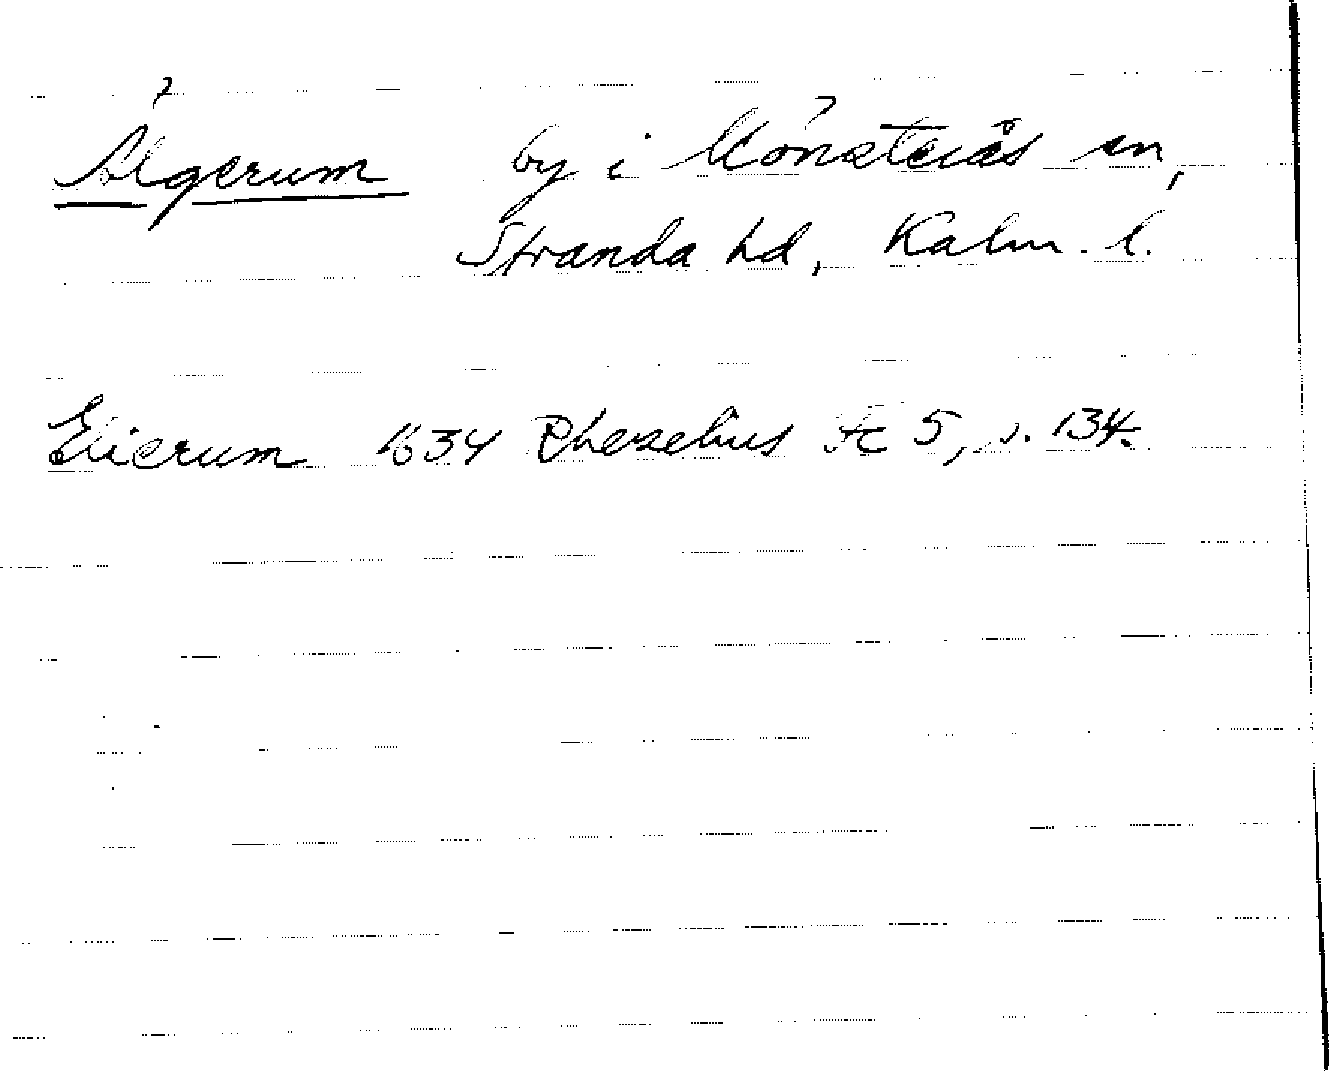 Älgerum by i Mönsterås sn,
Stranda hd, Kalm. l.
Elierum 1634 Rhezelius Fc 5, s. 134.